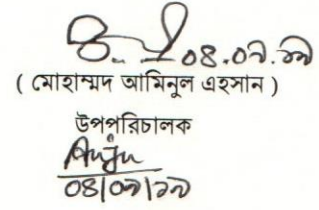 ০৪.০৯.১৯
( মোহাম্মদ আমিনুল এহসান )
উপপরিচালক
Anju
০৪/০৯/১৯